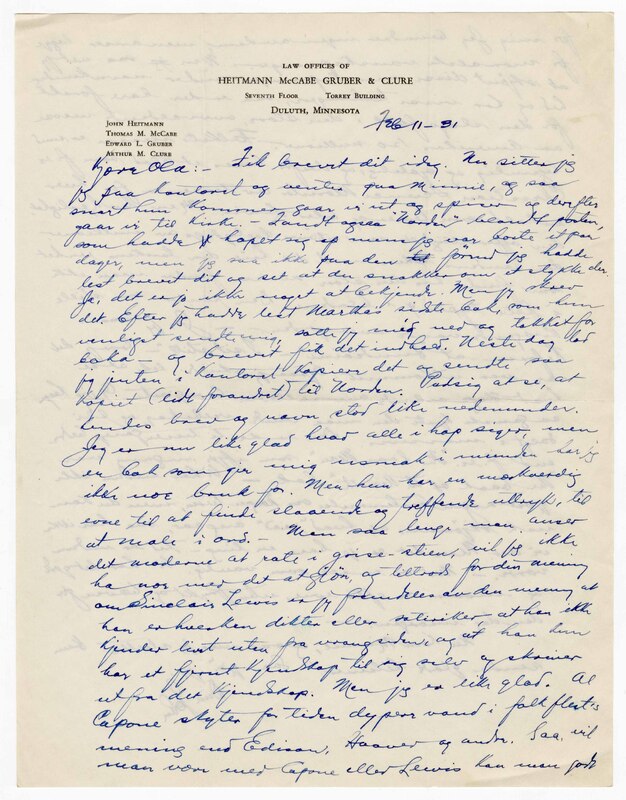 LAW OFFICES OF
HEITMANN McCABE GRUBER & CLURE
SEVENTH FLOOR TORREY BUILDING
DULUTH, MINNESOTA
JOHN HEITMANN
THOMAS M. McCABE
EDWARD L. GRUBER
ARTHUR M. CLURE
Feb 11 - 31
Kjære Ola:- Fik brevet dit idag. Nu sitter jeg
jeg paa kontoret og venter paa Minnie, og saa
snart hun kommer gaar vi ut og spiser og derefter
gaar vi til kirke. Fandt ogsaa "Norden" blandt posten,
som hadde hopet sig op mens jeg var borte et par
dager, men jeg saa ikke paa den førend jeg hadde
lest brevet dit og set at du snakker om et stykke der.
Ja, det er jo ikke noget at bekjende. Men jeg skrev
det. Efter jeg hadde lest Marthas sidste bok, som hun
venligst sendte mig, satte jeg mig ned og takket for
boka - og brevet fik det indhold. Neste dag lod
jeg jenten i kontoret kopiere det og sendte saa
kopiet (lidt forandret) til Norden. Pudsig at se, at
hendes brev og navn stod like nedenunder.
Jeg er nu like glad hvad alle i hop siger, men
en bok som gir mig usmak i munden har jeg
ikke noe bruk for. Men hun har en merkverdig
evne til at finde slaaende og treffende uttryk, til
at male i ord. - Men saa lenge man anser
det moderne at rote i grise-stien, vil jeg ikke
ha noe med det at gjøre, og tiltrods for din mening
om Sinclair Lewis er jeg fremdeles av den mening at
han er hverken dikter eller satiriker, at han ikke
kjender livet uten fra vrangsiden, og at han kun
har et fjernt kjendskap til sig selv og skriver
ut fra det kjendskap. Men jeg er like glad. Al
Capone skyter for tiden dypere vand i folk flest's
mening end Edison, Hoover og andre. Saa vil
man være med Capone eller Lewis kan man godt